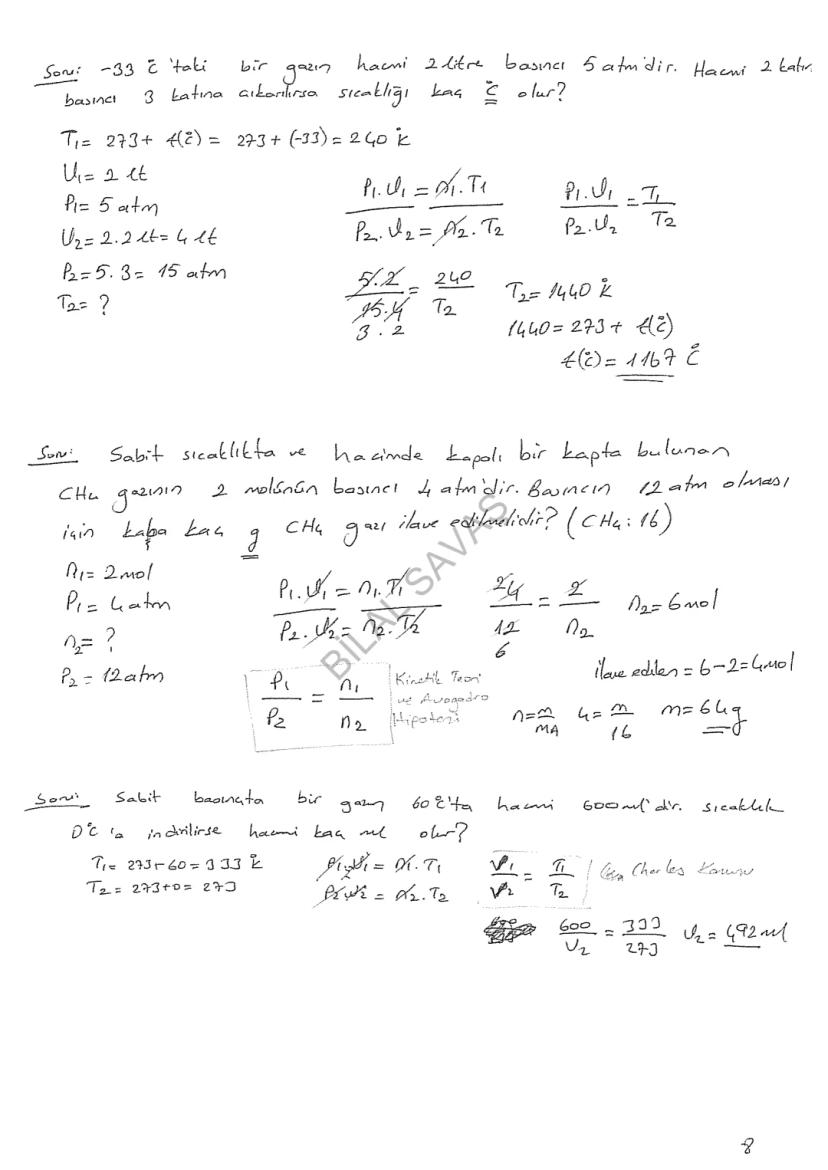 Soru: -33 °C 'taki bir gazın hacmi 2 litre basıncı 5 atm'dir. Hacmi 2 katın
basıncı 3 katına çıkarılırsa sıcaklığı kaç °C olur?
T1 = 273 + t(°C) = 273 + (-33) = 240 °K
V1 = 2 lt
P1 = 5 atm
V2 = 2.2 lt = 4 lt
P2 = 5.3 = 15 atm
T2 = ?
P1.V1 = n1.T1
P2.V2 = n2.T2
P1.V1 / P2.V2 = T1 / T2
5.2 / 15.4 = 240 / T2
3.2
T2 = 1440 °K
1440 = 273 + t(°C)
t(°C) = 1167 °C
Soru: Sabit sıcaklıkta ve hacimde kapalı bir kapta bulunan
CH4 gazının 2 molünün basıncı 4 atm'dir. Basıncın 12 atm olması
için kaba kaç g CH4 gazı ilave edilmelidir? (CH4: 16)
n1 = 2 mol
P1 = 4 atm
n2 = ?
P2 = 12 atm
P1.V1 = n1.T1
P2.V2 = n2.T2
P1 / P2 = n1 / n2
Kinetik Teori
ve Avogadro
Hipotezi
2 4 / 12 = 2 / n2
6
n2 = 6 mol
ilave edilen = 6 - 2 = 4 mol
n = m / MA 4 = m / 16 m = 64 g
BİLAL SAVAŞ
Soru: Sabit basınçta bir gazın 60 °C'ta hacmi 600 ml'dir. sıcaklık
0°C 'a indirilirse hacmi kaç ml olur?
T1 = 273+60 = 333 °K
T2 = 273+0 = 273
P1.V1 = n1.T1
P2.V2 = n2.T2
V1 / V2 = T1 / T2
Charles Kanunu
600 / V2 = 333 / 273 V2 = 492 ml
8